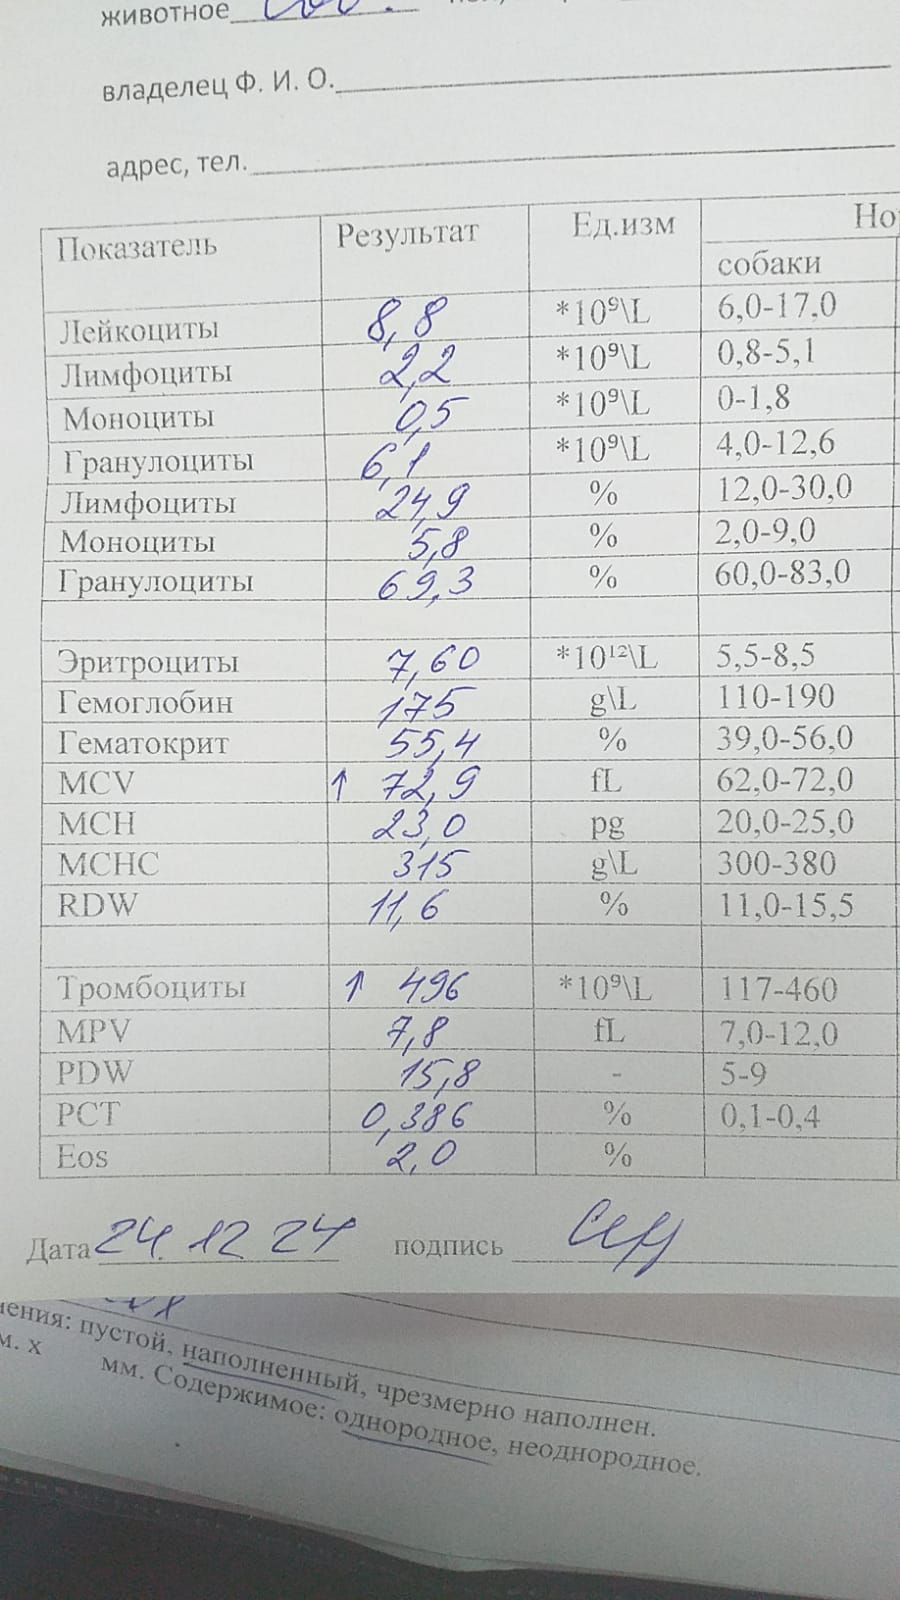 животное
владелец Ф. И. О.
адрес, тел.
Показатель Результат Ед.изм
собаки
Лейкоциты 8,8 *10⁹\L 6,0-17,0
Лимфоциты 2,2 *10⁹\L 0,8-5,1
Моноциты 0,5 *10⁹\L 0-1,8
Гранулоциты 6,1 *10⁹\L 4,0-12,6
Лимфоциты 24,9 % 12,0-30,0
Моноциты 5,8 % 2,0-9,0
Гранулоциты 69,3 % 60,0-83,0
Эритроциты 7,60 *10¹²\L 5,5-8,5
Гемоглобин 175 g\L 110-190
Гематокрит 55,4 % 39,0-56,0
MCV ↑ 72,9 fL 62,0-72,0
MCH 23,0 pg 20,0-25,0
MCHC 315 g\L 300-380
RDW 11,6 % 11,0-15,5
Тромбоциты ↑ 496 *10⁹\L 117-460
MPV 7,8 fL 7,0-12,0
PDW 15,8 - 5-9
PCT 0,386 % 0,1-0,4
Eos 2,0 %
Дата 24.12 24 подпись
пустой, наполненный, чрезмерно наполнен.
м. х мм. Содержимое: однородное, неоднородное.